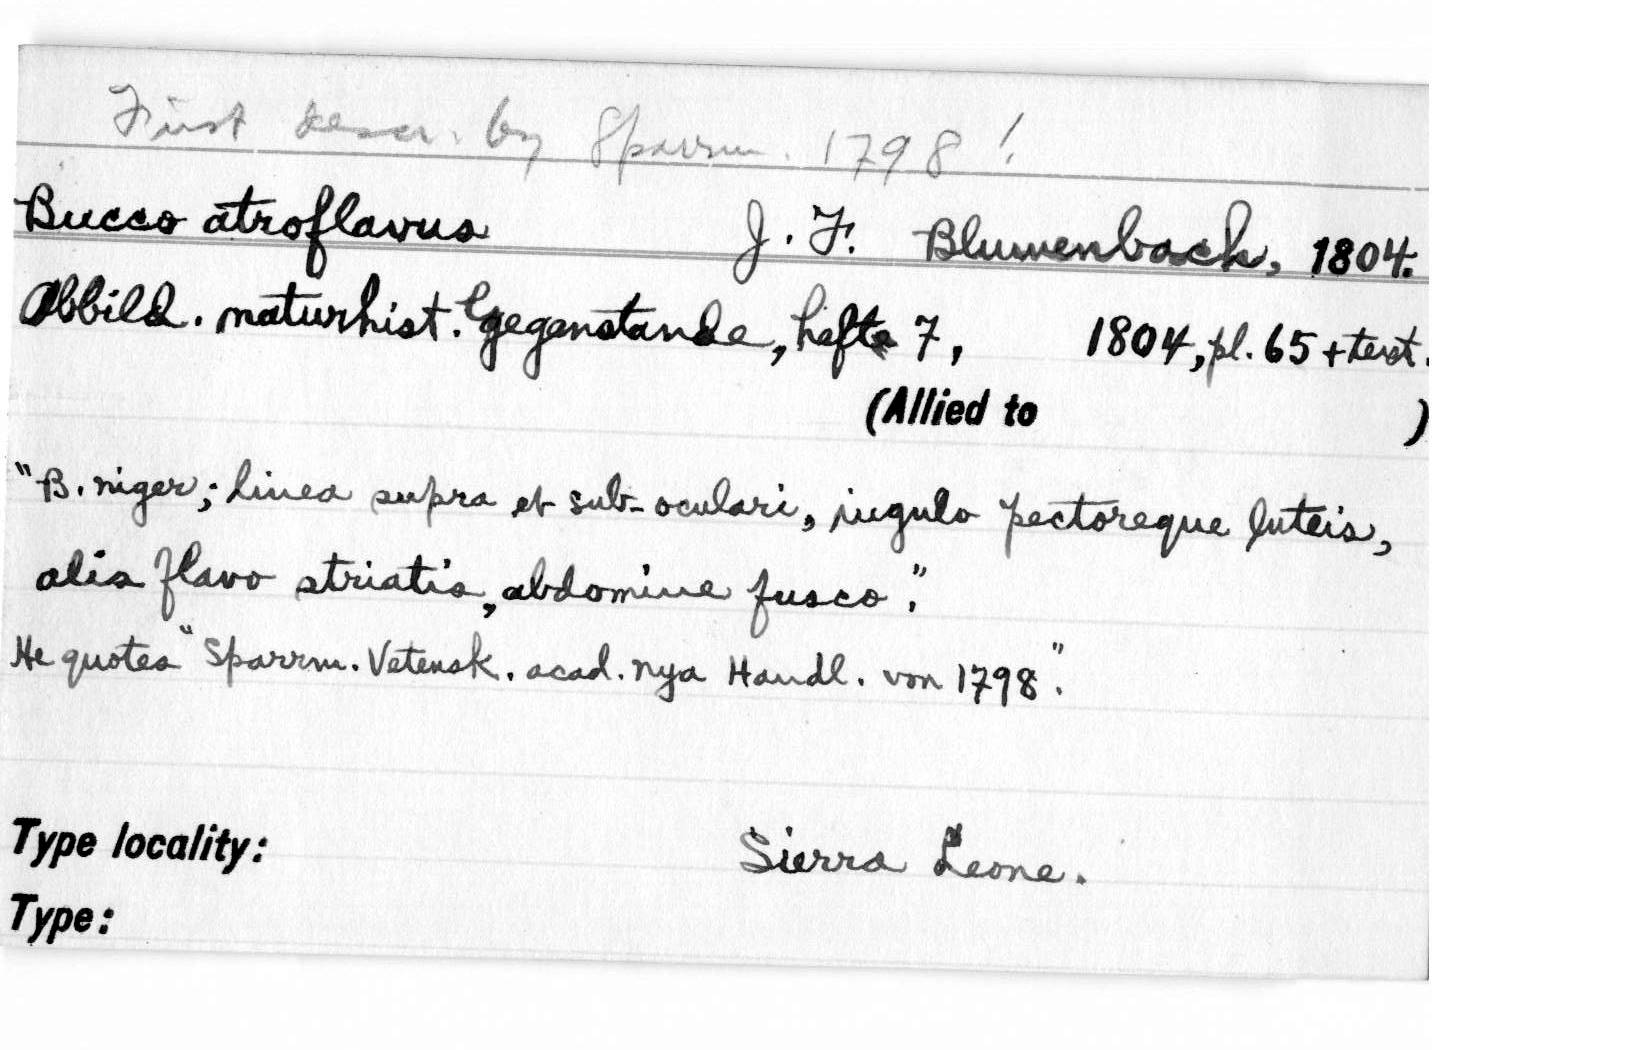 First descr. by Sparrm. 1798!
Bucco atroflavus J. F. Blumenbach, 1804.
Abbild. naturhist. Gegenstande, hefte 7, 1804, pl. 65 + text.
(Allied to )
"B. niger; linea supra et sub-oculari, jugulo pectoreque luteis,
alis flavo striatis, abdomine fusco".
He quotes "Sparrm. Vetensk. acad. nya Handl. von 1798".
Type locality: Sierra Leone.
Type: